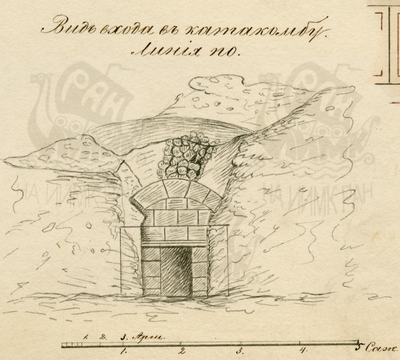 Видъ входа въ катакомбу.
Линія по.
1. 2. 3. Арш.
1. 2 3. 4. 5 Саж.
РАН
НА ИИМК РАН